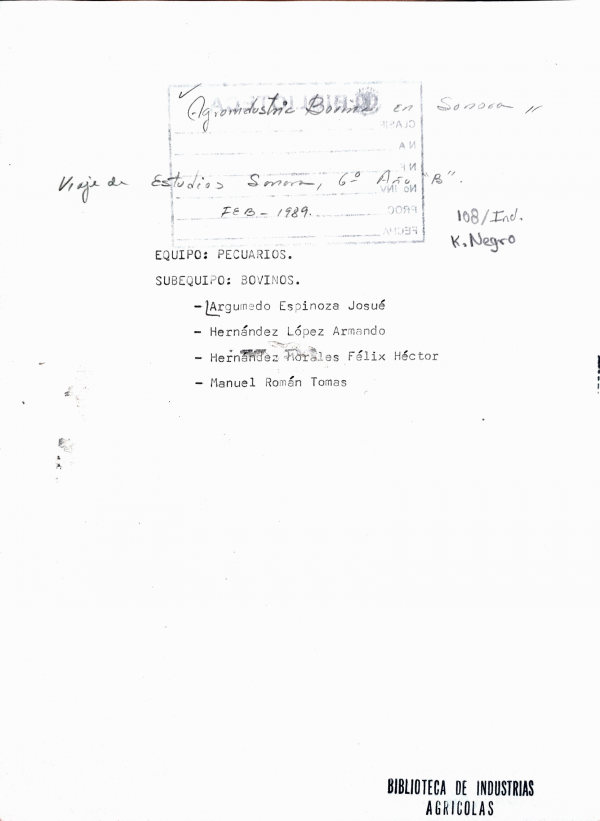 Agroindustria Bovina en Sonora "
BIBLIOTECA
CLASIF
N A
N F
Viaje de Estudios Sonora, 6º Año "B".
No. INV
FEB - 1989.
PROC
108/Ind.
FECHA
K. Negro
EQUIPO: PECUARIOS.
SUBEQUIPO: BOVINOS.
- Argumedo Espinoza Josué
- Hernández López Armando
- Hernández Morales Félix Héctor
- Manuel Román Tomas
BIBLIOTECA DE INDUSTRIAS
AGRICOLAS